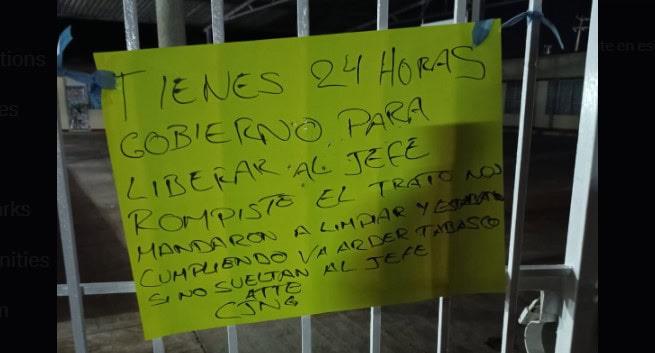 TIENES 24 HORAS
GOBIERNO PARA
LIBERAR AL JEFE
ROMPISTE EL TRATO NOS
MANDARON A LIMPIAR Y ESTABAMOS
CUMPLIENDO VA ARDER TABASCO
SI NO SUELTAN AL JEFE
ATTE
CJNG